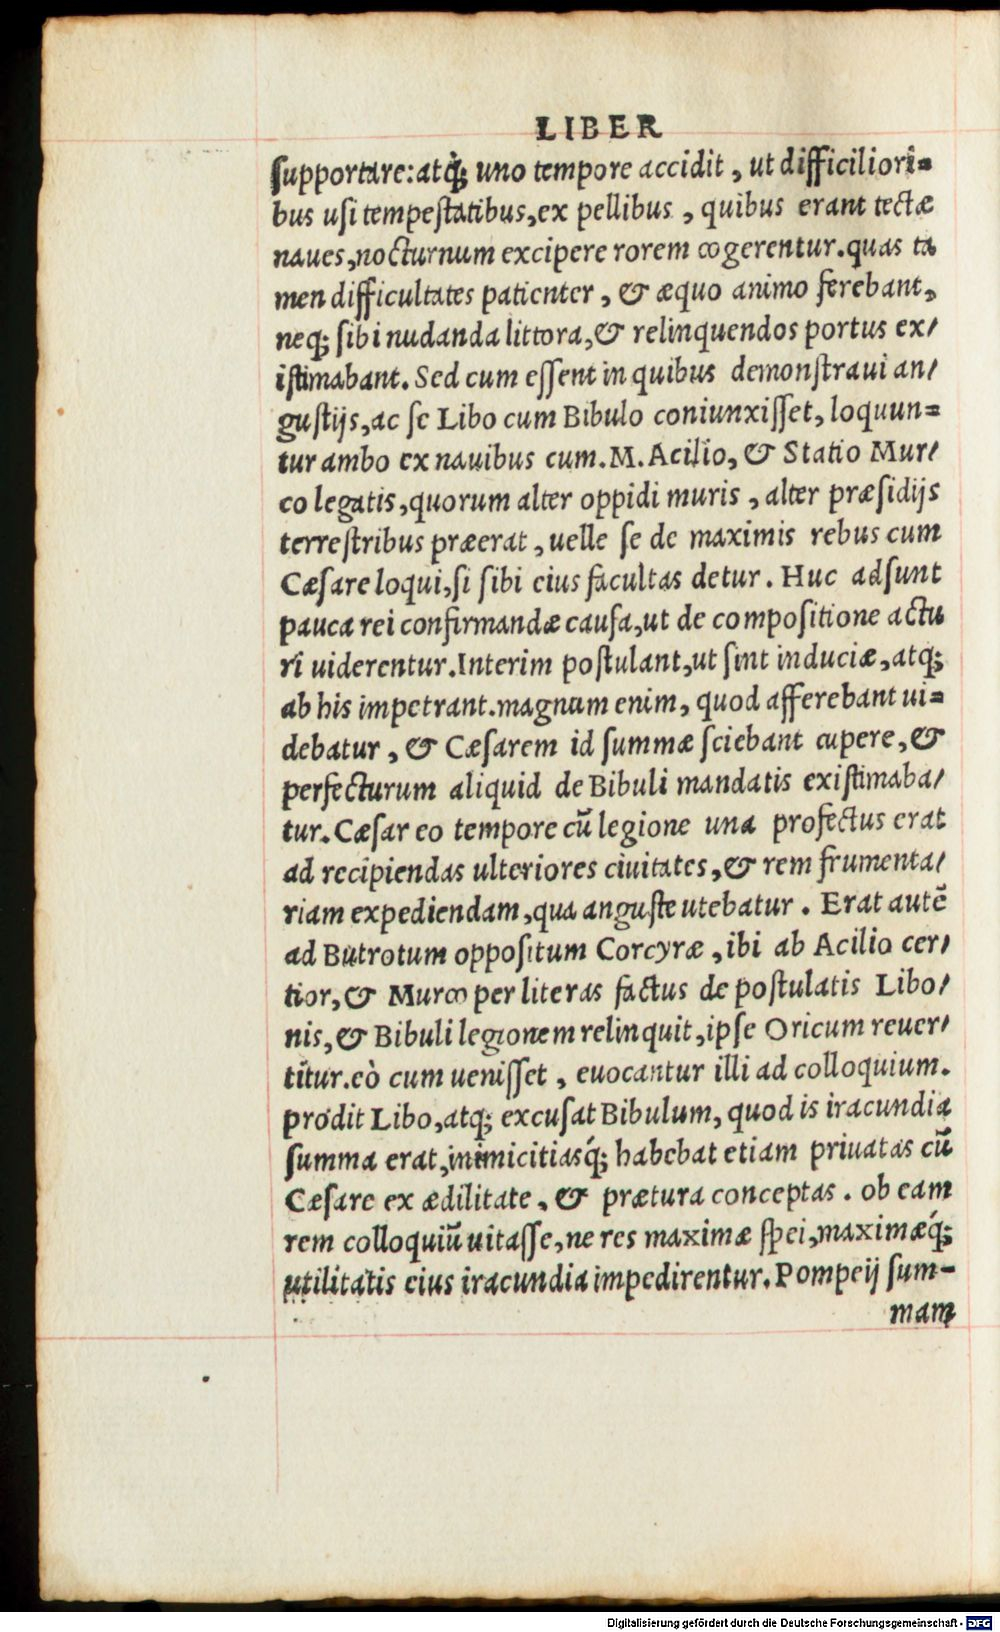 LIBER
ſupportare:atq́; uno tempore accidit, ut difficiliori=
bus uſi tempeſtatibus,ex pellibus, quibus erant tectæ
naues,nocturnum excipere rorem cogerentur.quas ta
men difficultates patienter, & æquo animo ferebant,
neq; ſibi nudanda littora,& relinquendos portus ex/
iſtimabant. Sed cum eſſent in quibus demonſtraui an/
guſtijs,ac ſe Libo cum Bibulo coniunxiſſet, loquun=
tur ambo ex nauibus cum.M.Acilio, & Statio Mur/
co legatis,quorum alter oppidi muris, alter præſidijs
terreſtribus præerat, uelle ſe de maximis rebus cum
Cæſare loqui,ſi ſibi eius facultas detur. Huc adſunt
pauca rei confirmandæ cauſa,ut de compoſitione actu
ri uiderentur.Interim poſtulant,ut ſint induciæ,atq;
ab his impetrant.magnum enim, quod afferebant ui=
debatur, & Cæſarem id ſummæ ſciebant cupere,&
perfecturum aliquid de Bibuli mandatis exiſtimaba/
tur.Cæſar eo tempore cũ legione una profectus erat
ad recipiendas ulteriores ciuitates,& rem frumenta/
riam expediendam,qua anguſte utebatur. Erat autẽ
ad Butrotum oppoſitum Corcyræ, ibi ab Acilio cer/
tior,& Murco per literas factus de poſtulatis Libo/
nis,& Bibuli legionem relinquit,ipſe Oricum reuer/
titur.eò cum ueniſſet, euocantur illi ad colloquium.
prodit Libo,atq; excuſat Bibulum, quod is iracundia
ſumma erat,inimicitiasq́; habebat etiam priuatas cũ
Cæſare ex ædilitate, & prætura conceptas. ob eam
rem colloquiũ uitaſſe,ne res maximæ ſpei,maximæq́;
utilitatis eius iracundia impedirentur.Pompeij ſum-
mam
Digitalisierung gefördert durch die Deutsche Forschungsgemeinschaft - DFG